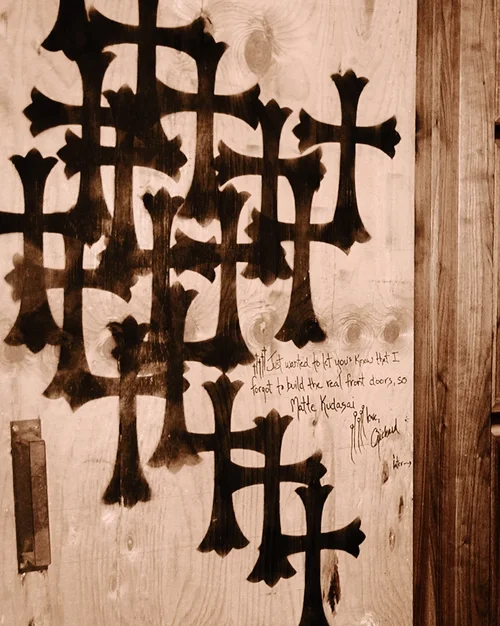 Just wanted to let you's know that I
forgot to build the real front doors, so
Matte Kudasai
love,